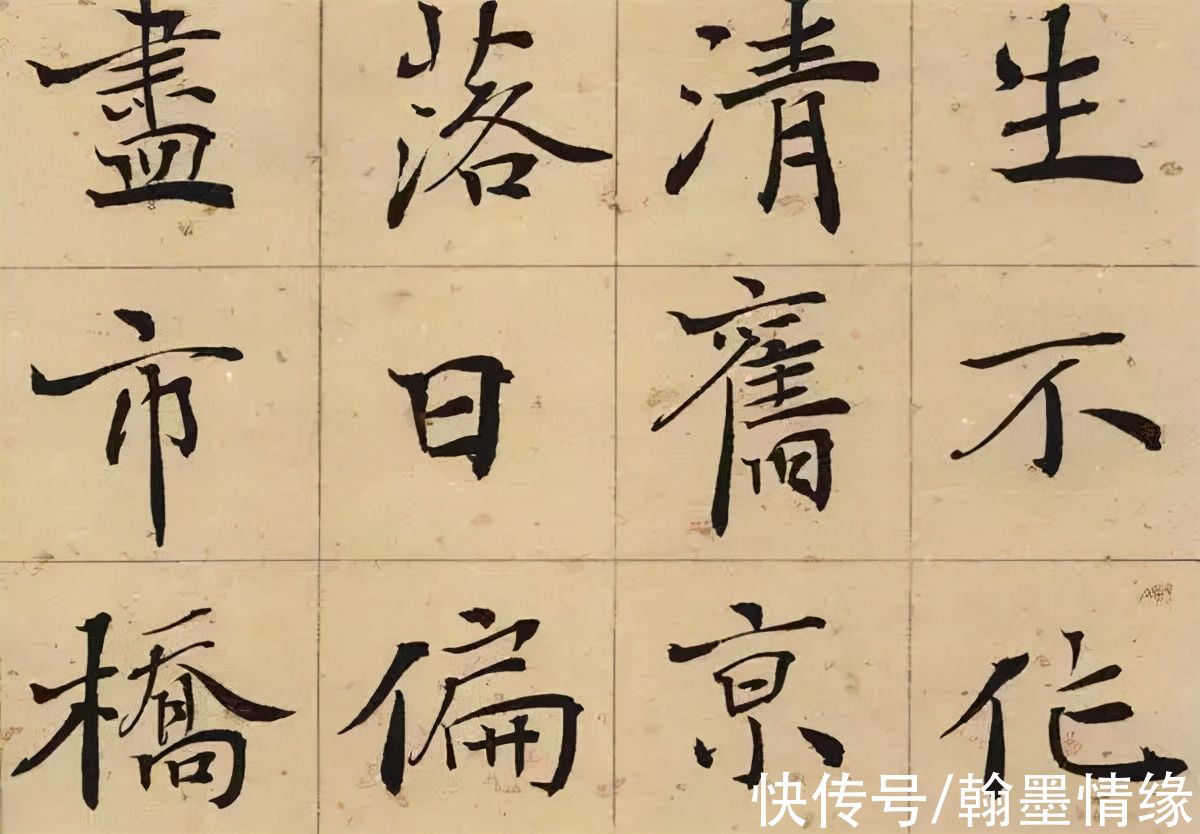 生不作
清舊京
落日偏
盡市橋
快传号/翰墨情缘